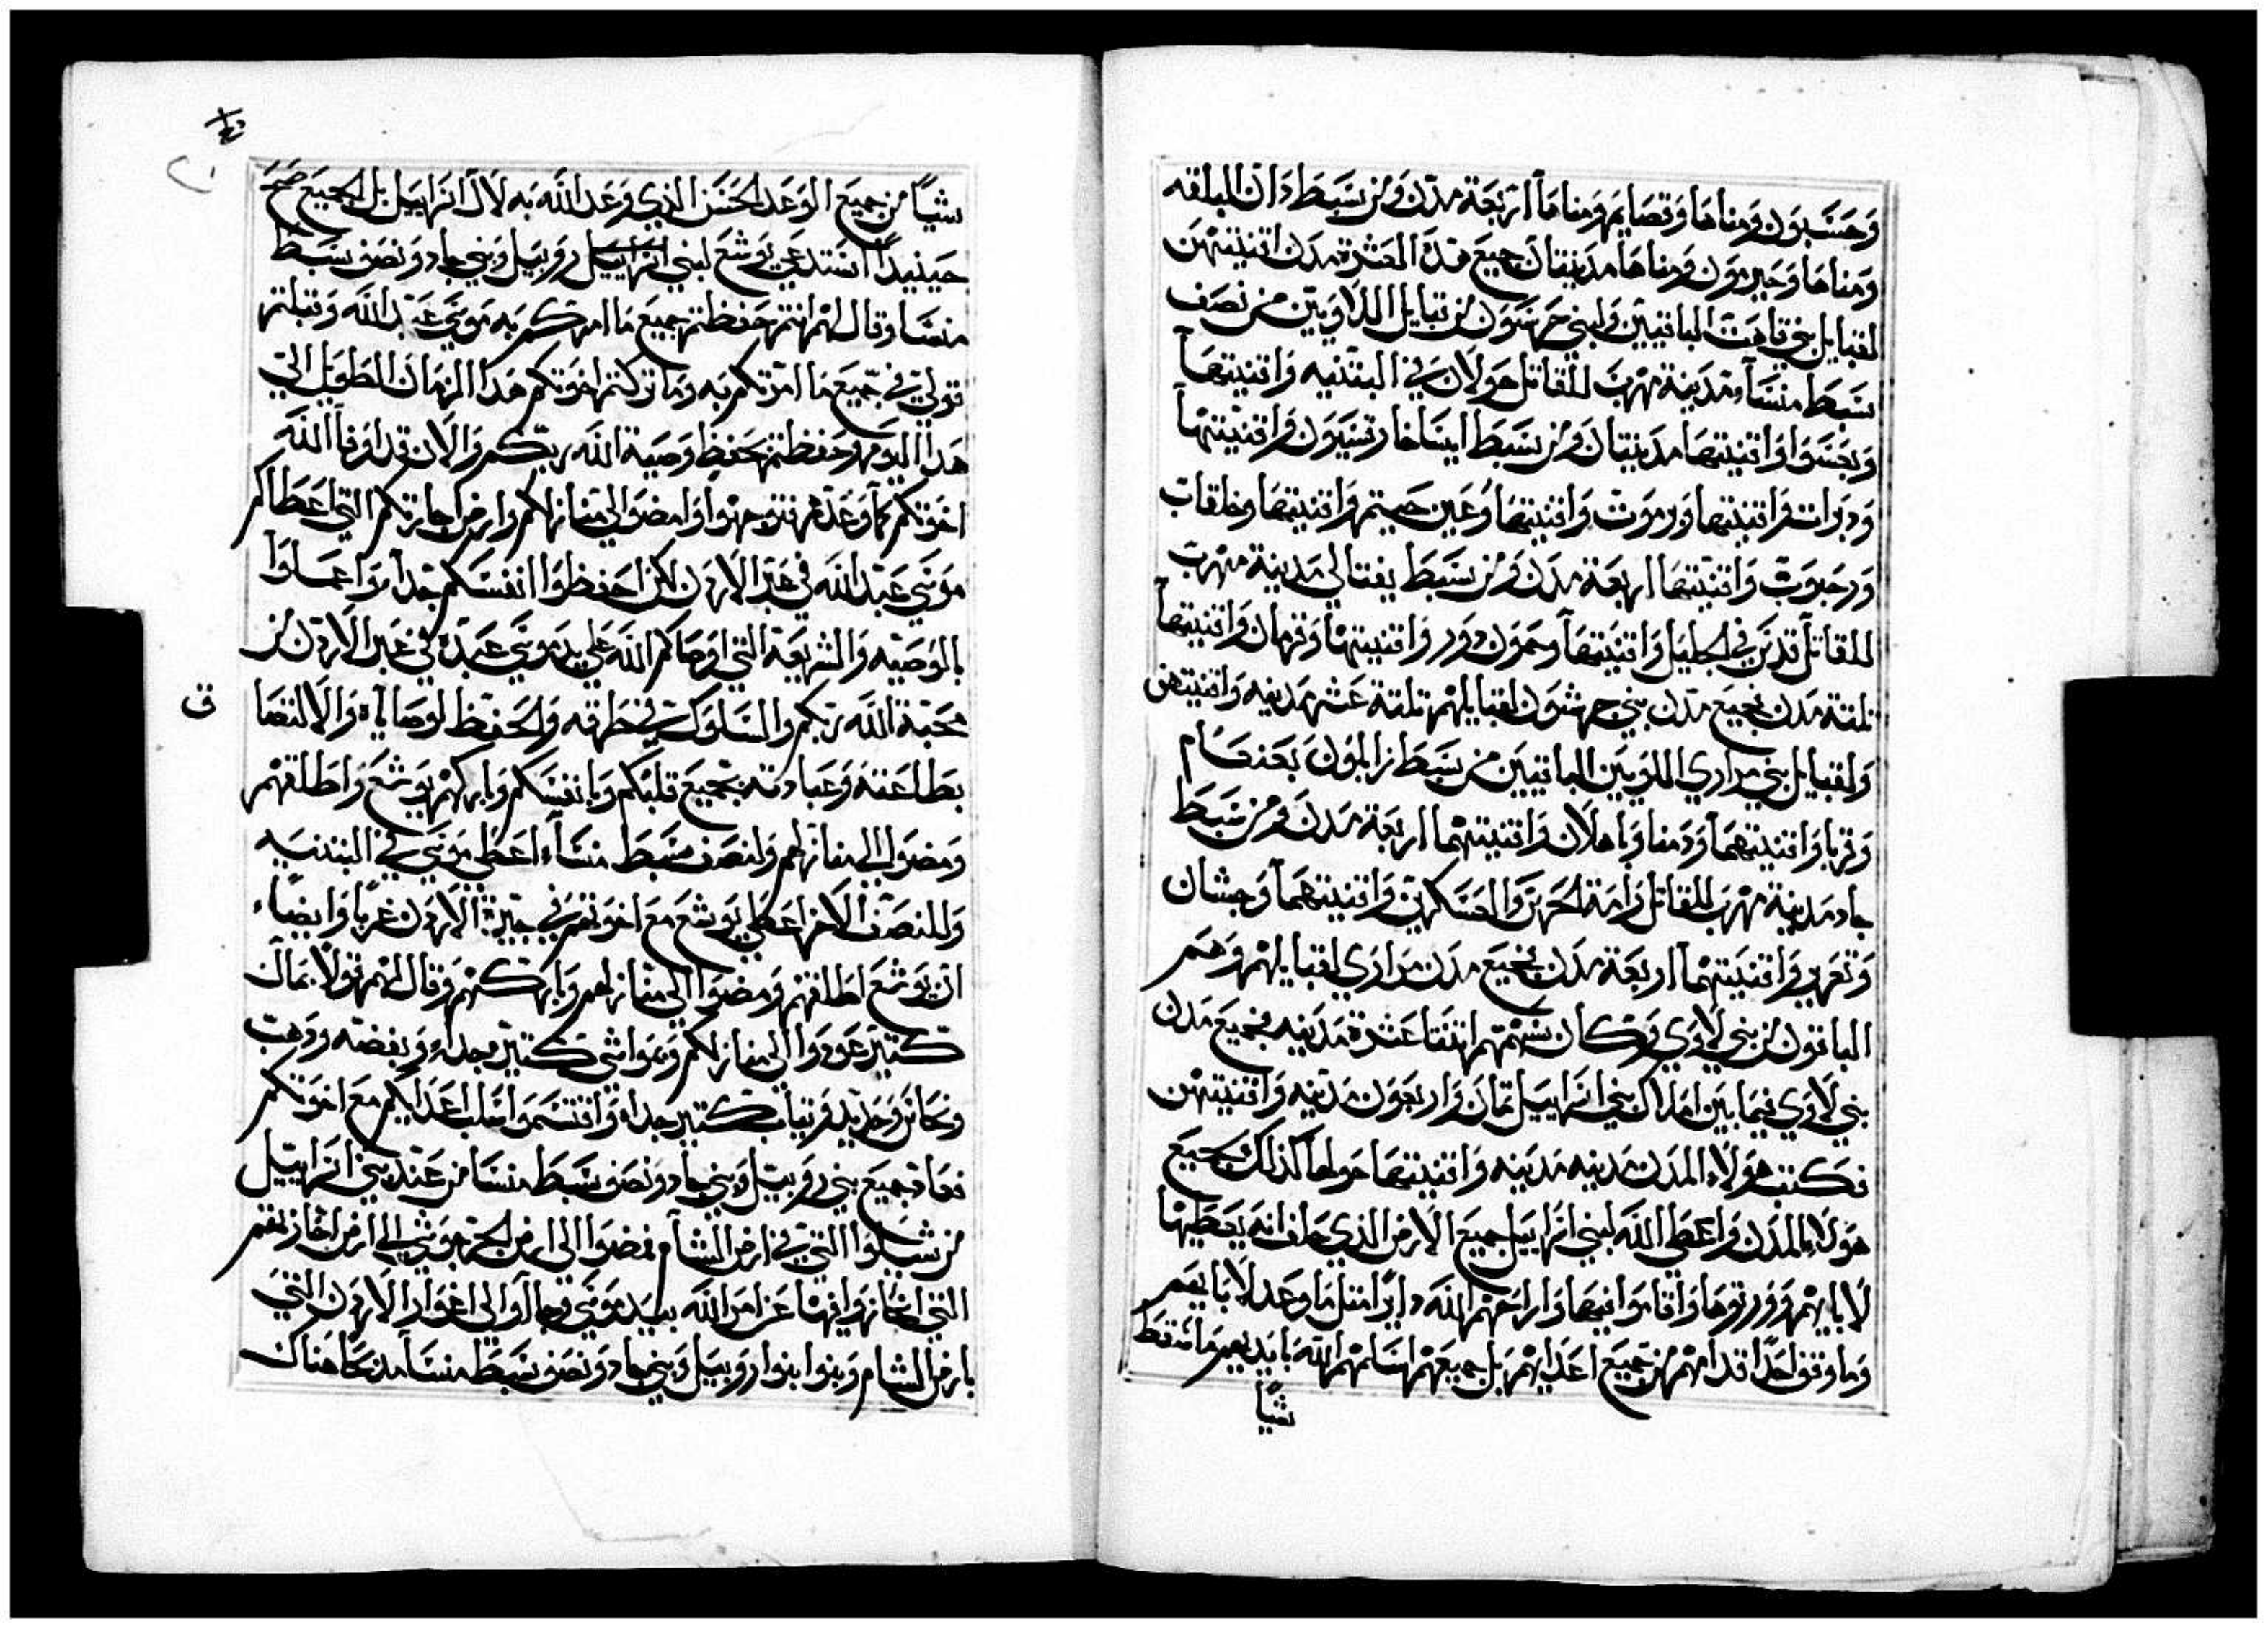 وحسبون ومناها وقصايم ومناها اربعة مدن ومن سبط دان البلقه
ومناها وجيرمون ومناها مدينتان جميع هذه العشرة مدن اقنيتهن
لقبايل بني قاهت الباقيين ولبني جرشون من قبايل اللاويين من نصف
سبط منسا مدينة مهرب للقاتل جولان في البتنيه واقنيتها
وبعسوا واقنيتها مدينتان ومن سبط ايساخار قسيون واقنيتها
ودبرات واقنيتها ورموت واقنيتها وعين جيتم واقنيتها وخلقات
ورحبوت واقنيتها اربعة مدن ومن سبط يفتالي مدينة مهرب
للقاتل قدس في الجليل واقنيتها وحمون دور واقنيتها وقرتان واقنيتها
تلتة مدن فجميع مدن بني جرشون لقبايلهم تلتة عشر مدينه واقنيتهن
ولقبايل بني مراري اللويين الباقيين من سبط زابلون بعنعام
وقرتا واقنيتهما ودمنا وباهلان واقنيتهما اربعة مدن ومن سبط
جاد مدينة مهرب للقاتل رامة الحرس والعسكرين واقنيتهما وحبشان
وتعزير واقنيتهما اربعة مدن فجميع مدن مراري لقبايلهم وهم
الباقون من بني لاوي وكان سهمهم اتنتا عشرة مدينه فجميع مدن
بني لاوي فيما بين املاك بني اسراييل تمان واربعون مدينه واقنيتهن
فكنت هولاء المدن مدينه مدينه واقنيتها حولها كذلك جميع
هولاء المدن واعطى الله لبني اسراييل جميع الارض الذي حلف انه يعطيها
لابايهم وورتوها واقاموا فيها واراحهم الله دايرا متل ما وعد لابايهم
وما وقف احدا قدامهم من جميع اعدايهم بل جميعهم اسلمهم الله بايديهم وما سقط
شيا
شيا من جميع الوعد الحسن الذي وعد الله به لال اسراييل بل الجميع صح
حينيدا استدعى يوشع لبني اسراييل روبيل وبني جاد ونصف سبط
منسا وقال لهم انتم حفظتم جميع ما امركم به موسى عبد الله وقبلتم
قولي في جميع ما امرتكم به وما تركتم اخوتكم هدا الزمان الطويل الي
هدا اليوم وحفظتم حفظ وصية الله ربكم والان قد اراف الله
اخوتكم كما وعدهم فتوجهوا وامضوا الي منازلكم وارض اجارتكم التي اعطاكم
موسى عبد الله في عبر الاردن لكن احفظوا انفسكم جدا واعملوا
بالوصيه والشريعة التي اوصاكم الله على يد موسى عبده في عبر الاردن من
محبة الله ربكم والسلوك في طرقه والحفظ لوصاياه والالتصا
ق
بطاعته وعبادته بجميع قلبكم وبانفسكم وباركهم يوشع واطلقهم
ومضوا الي منازلهم ولنصف سبط منسا اعطى موسى في البتنيه
وللنصف الاخر اعطى يوشع مع اخوتهم في جيزة الاردن غربا وايضا
ان يوشع اطلقهم ومضوا الي منازلهم وباركهم وقال لهم قولا بمال
كتير عودوا الي منازلكم وبمواشي كتيره جدا وبفضه ودهب
ونحاس وحديد وتياب كتير جدا واقتسموا سلب اعدايكم مع اخوتكم
فعاد جميع بني روبيل وبني جاد ونصف سبط منسا من عند بني اسراييل
من شيلوا التي في ارض الشام فمضوا الى ارض الجرموش الي ارض احازتهم
التي انحازوا فيها عن امر الله بيد موسى وجاآوا الي اغوار الاردن التي
بارض الشام وبنوا بنوا روبيل وبني جاد ونصف سبط منسا مدبحا هناك